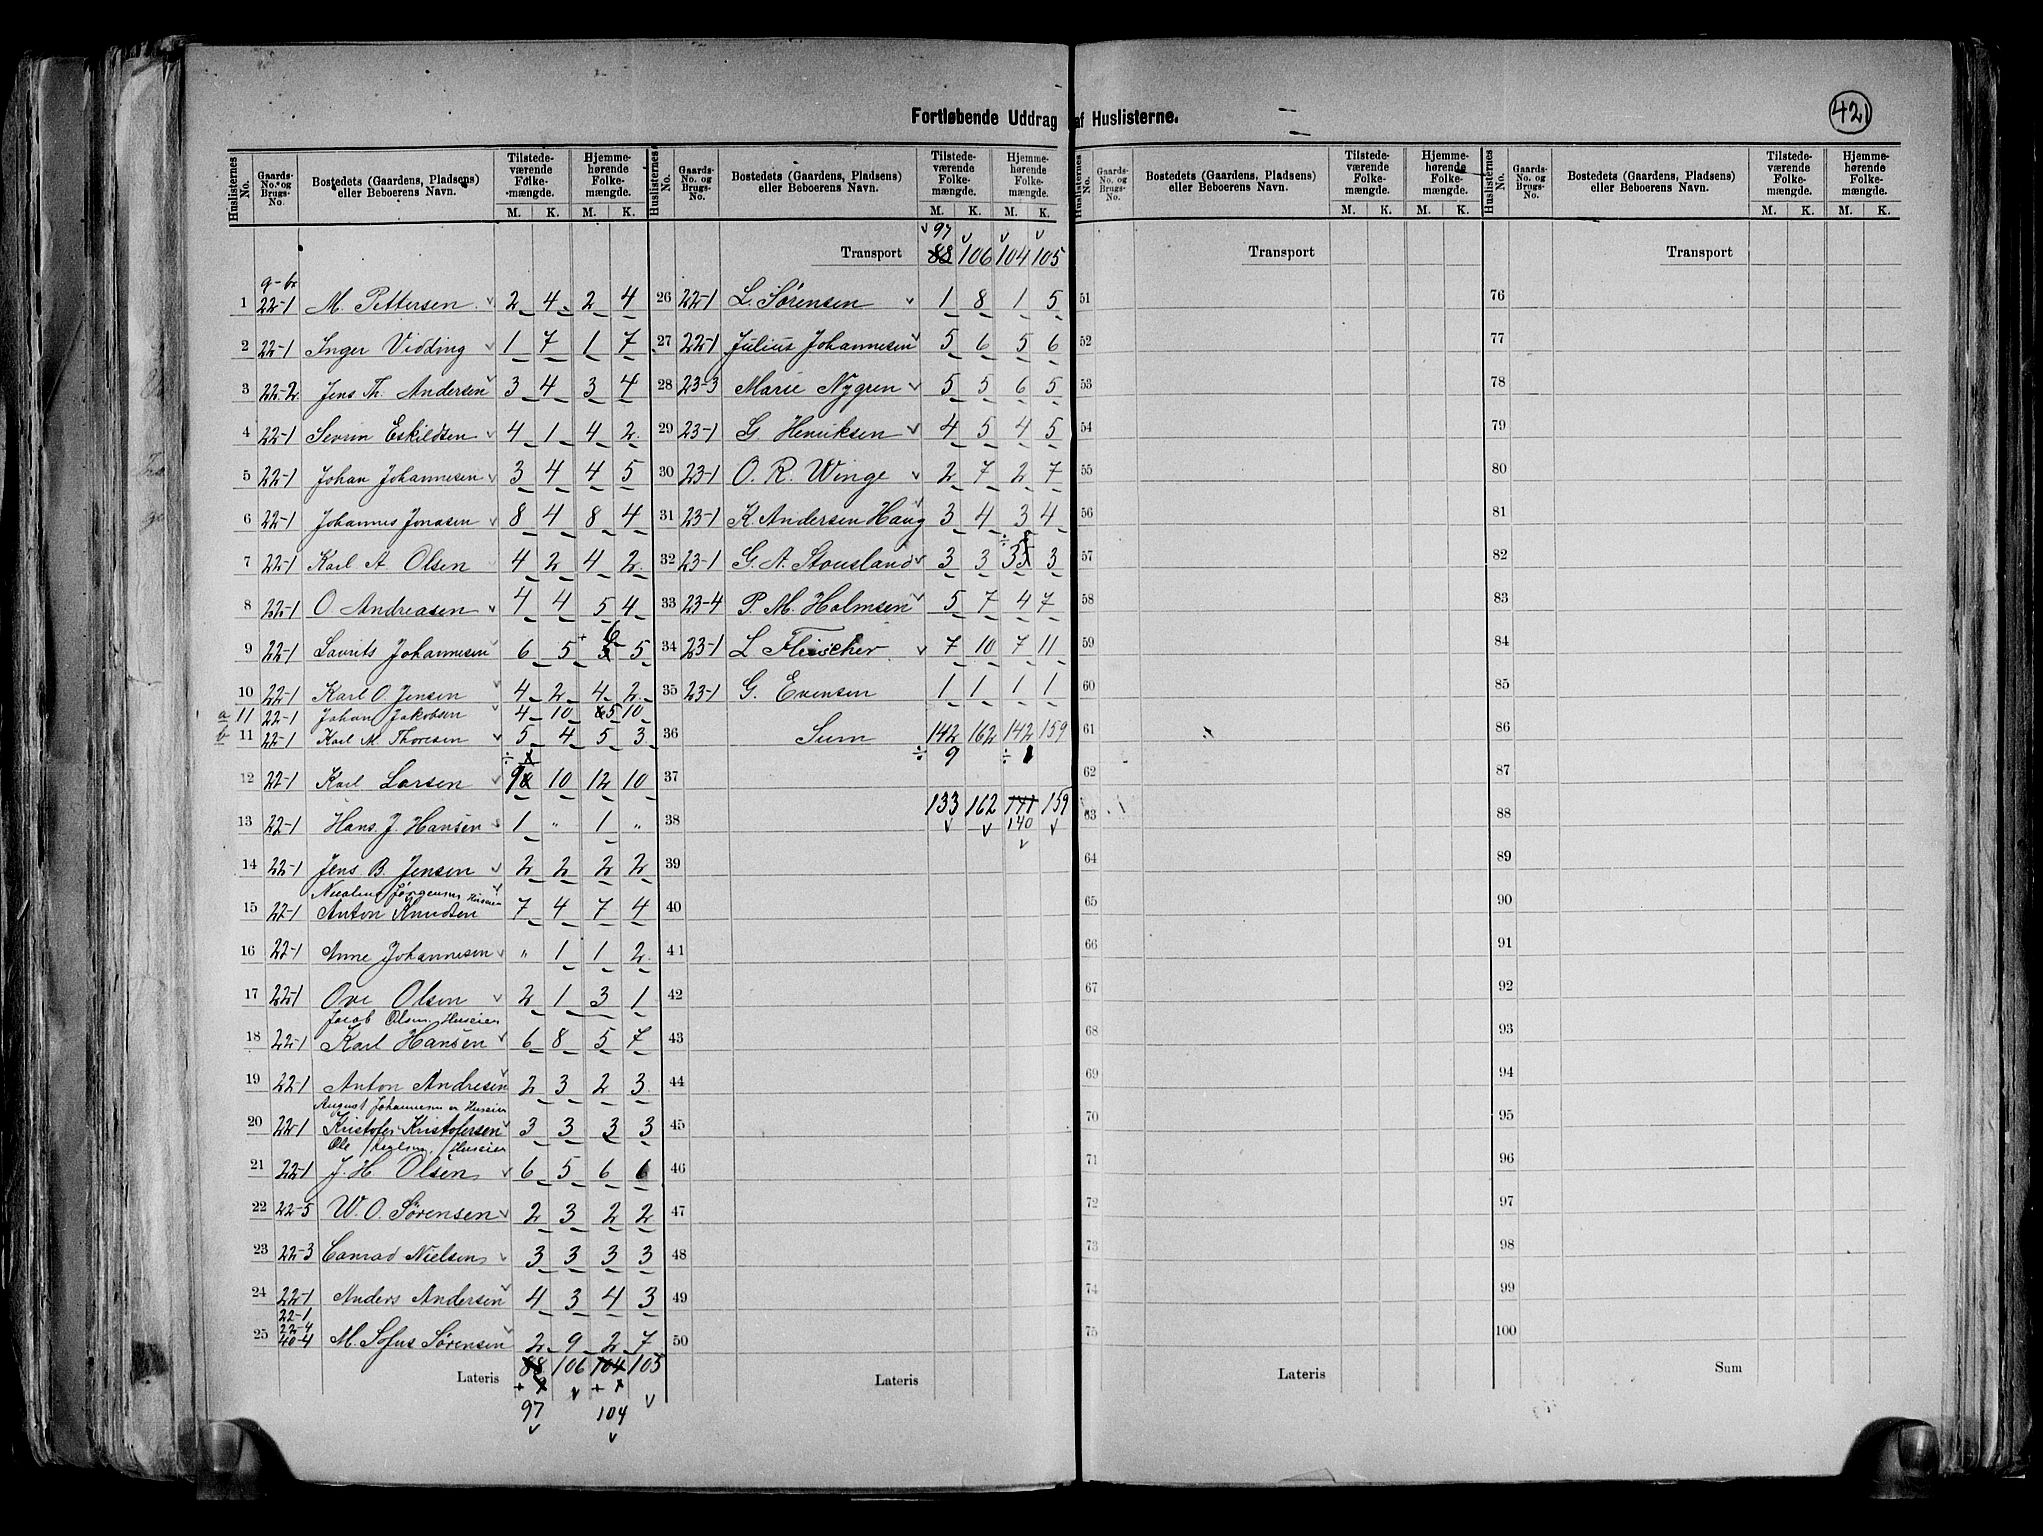 Fortløbende Uddrag af Huslisterne.
421
Huslisternes No. Gaards-No. og Brugs-No. Bostedets (Gaardens, Pladsens) eller Beboerens Navn. Tilstedeværende Folkemængde. M. K. Hjemmehørende Folkemængde. M. K.
g-br
1 22-1 M. Pettersen 2 4 2 4
2 22-1 Inger Vidding 1 7 1 7
3 22-2 Jens Th. Andersen 3 4 3 4
4 22-1 Sevrin Eskildsen 4 1 4 2
5 22-1 Johan Johannesen 3 4 4 5
6 22-1 Johannes Jonasen 8 4 8 4
7 22-1 Karl A Olsen 4 2 4 2
8 22-1 O. Andreasen 4 4 5 4
9 22-1 Laurits Johannesen 6 5 6 5
10 22-1 Karl O. Jensen 4 2 4 2
a 11 22-1 Johan Jakobsen 4 10 5 10
b 11 22-1 Karl M. Thoresen 5 4 5 3
12 22-1 Karl Larsen 9 10 12 10
13 22-1 Hans J. Hansen 1 " 1 "
14 22-1 Jens B. Jensen 2 2 2 2
Jørgensen Huseier
15 22-1 Anton Knudsen 7 4 7 4
16 22-1 Anne Johannesen " 1 1 2
17 22-1 Ove Olsen 2 1 3 1
Jacob Olsen Huseier
18 22-1 Karl Hansen 6 8 5 7
19 22-1 Anton Andresen 2 3 2 3
August Johannesen er Huseier
20 22-1 Kristofer Kristofersen 3 3 3 3
Ole Huseier
21 22-1 J. H. Olsen 6 5 6 6
22 22-5 W. O. Sørensen 2 3 2 2
23 22-3 Conrad Nielsen 3 3 3 3
24 22-1 Anders Andersen 4 3 4 3
22-1
22-4
25 40-4 M. Sofus Sørensen 2 9 2 7
Lateris 88 106 104 105
97 104
Huslisternes No. Gaards-No. og Brugs-No. Bostedets (Gaardens, Pladsens) eller Beboerens Navn. Tilstedeværende Folkemængde. M. K. Hjemmehørende Folkemængde. M. K.
97
Transport 88 106 104 105
26 22-1 L. Sørensen 1 8 1 5
27 22-1 Julius Johannesen 5 6 5 6
28 23-3 Marie Nygren 5 5 6 5
29 23-1 G Henriksen 4 5 4 5
30 23-1 O. R. Winge 2 7 2 7
31 23-1 K. Andersen Haug 3 4 3 4
32 23-1 G. A. Stousland 3 3 3 3
33 23-4 P. M. Holmsen 5 7 4 7
34 23-1 L Fleischer 7 10 7 11
35 23-1 G. Evensen 1 1 1 1
36 Sum 142 162 142 159
÷ 9 ÷ 1
37
133 162 141 159
38 140
39
40
41
42
43
44
45
46
47
48
49
50
Lateris
Huslisternes No. Gaards-No. og Brugs-No. Bostedets (Gaardens, Pladsens) eller Beboerens Navn. Tilstedeværende Folkemængde. M. K. Hjemmehørende Folkemængde. M. K.
Transport
51
52
53
54
55
56
57
58
59
60
61
62
63
64
65
66
67
68
69
70
71
72
73
74
75
Lateris
Huslisternes No. Gaards-No. og Brugs-No. Bostedets (Gaardens, Pladsens) eller Beboerens Navn. Tilstedeværende Folkemængde. M. K. Hjemmehørende Folkemængde. M. K.
Transport
76
77
78
79
80
81
82
83
84
85
86
87
88
89
90
91
92
93
94
95
96
97
98
99
100
Sum